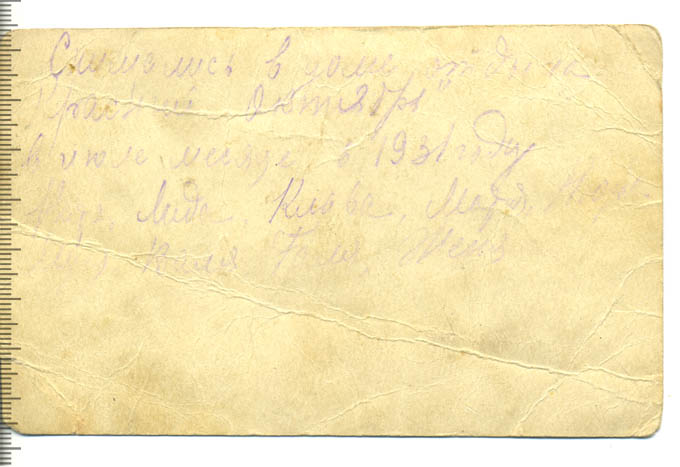 Снимались в доме отдыха
Красный Октябрь"
в июле месяце в 1931 году
Лида, Клава, Маря,
Валя Галя, Женя